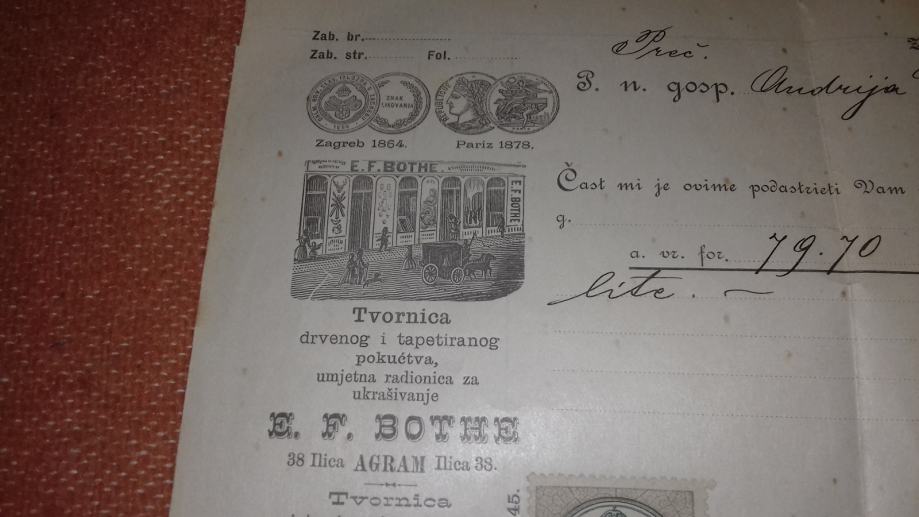 Zab. br.
Zab. str. Fol.
Preč.
P. n. gosp. Andrija
ZNAK
REPUBLIQUE
Zagreb 1864. Pariz 1878.
E. F. BOTHE.
E. F. BOTHE
Čast mi je ovime podastrieti Vam
g.
a. vr. for. 79.70
lite.
Tvornica
drvenog i tapetiranog
pokućtva,
umjetna radionica za
ukrašivanje
E. F. BOTHE
38 Ilica AGRAM Ilica 38.
Tvornica
45.